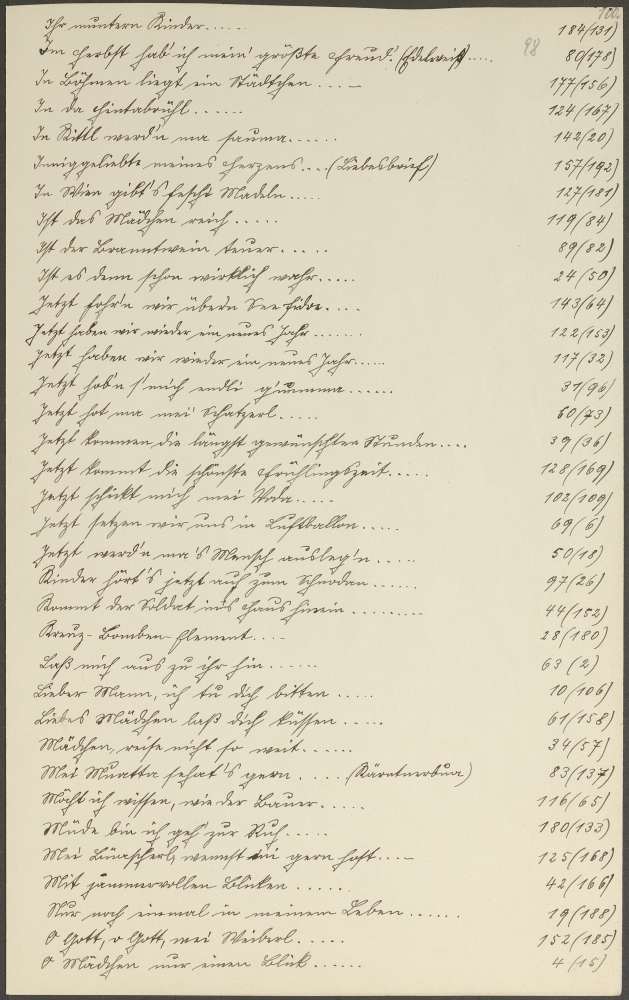 100.
98
Ihr muntern Kinder..... 184(131)
Im Herbst hab' ich mein' größte Freud'. (Edelweiß).... 80(178)
In Böhmen liegt ein Städtchen.... 177(156)
In da Hintabrühl...... 124(167)
In Kittl werd'n ma sauma...... 142(20)
Inniggeliebte meines Herzens....(Liebesbrief) 157(192)
In Wien gibt's fesche Madeln..... 127(181)
Ist das Mädchen reich..... 119(84)
Ist der Branntwein teuer...... 89(82)
Ist es denn schon wirklich wahr..... 24(50)
Jetzt fohr'n wir übern See 143(64)
Jetzt haben wir wieder ein neues Jahr....... 122(153)
Jetzt haben wir wieder ein neues Jahr...... 117(32)
Jetzt hob'n s' mich endli g'numma...... 31(96)
Jetzt hot ma mei Schatzerl..... 60(73)
Jetzt kommen die längst gewünschten Stunden.... 39(36)
Jetzt kommt die schönste Frühlingszeit...... 128(169)
Jetzt schickt mich mei Voda..... 102(109)
Jetzt setzen wir uns in Luftballon..... 69(6)
Jetzt werd'n ma's Mensch ausleg'n..... 50(18)
Kinder hört's jetzt auf zum Schnodan...... 97(26)
Kommt der Soldat ins Haus hinein......... 44(152)
Kreuz-Bomben-Element.... 28(180)
Laß mich aus zu ihr hin...... 63(2)
Lieber Mann, ich tu dich bitten..... 10(106)
Liebes Mädchen laß dich küssen..... 61(158)
Mädchen, reise nicht so weit...... 34(57)
Mei Muatta sehat's gern..... (Kärntnerbua) 83(137)
Möcht ich wissen, wie der Bauer..... 116(65)
Müde bin ich geh' zur Ruh..... 180(133)
Mei wennst mi gern host.... 125(168)
Mit jammervollen Blicken...... 42(166)
Nur noch einmal in meinem Leben...... 19(188)
O Gott, o Gott, mei Weiberl..... 152(185)
O Mädchen nur einen Blick...... 4(15)